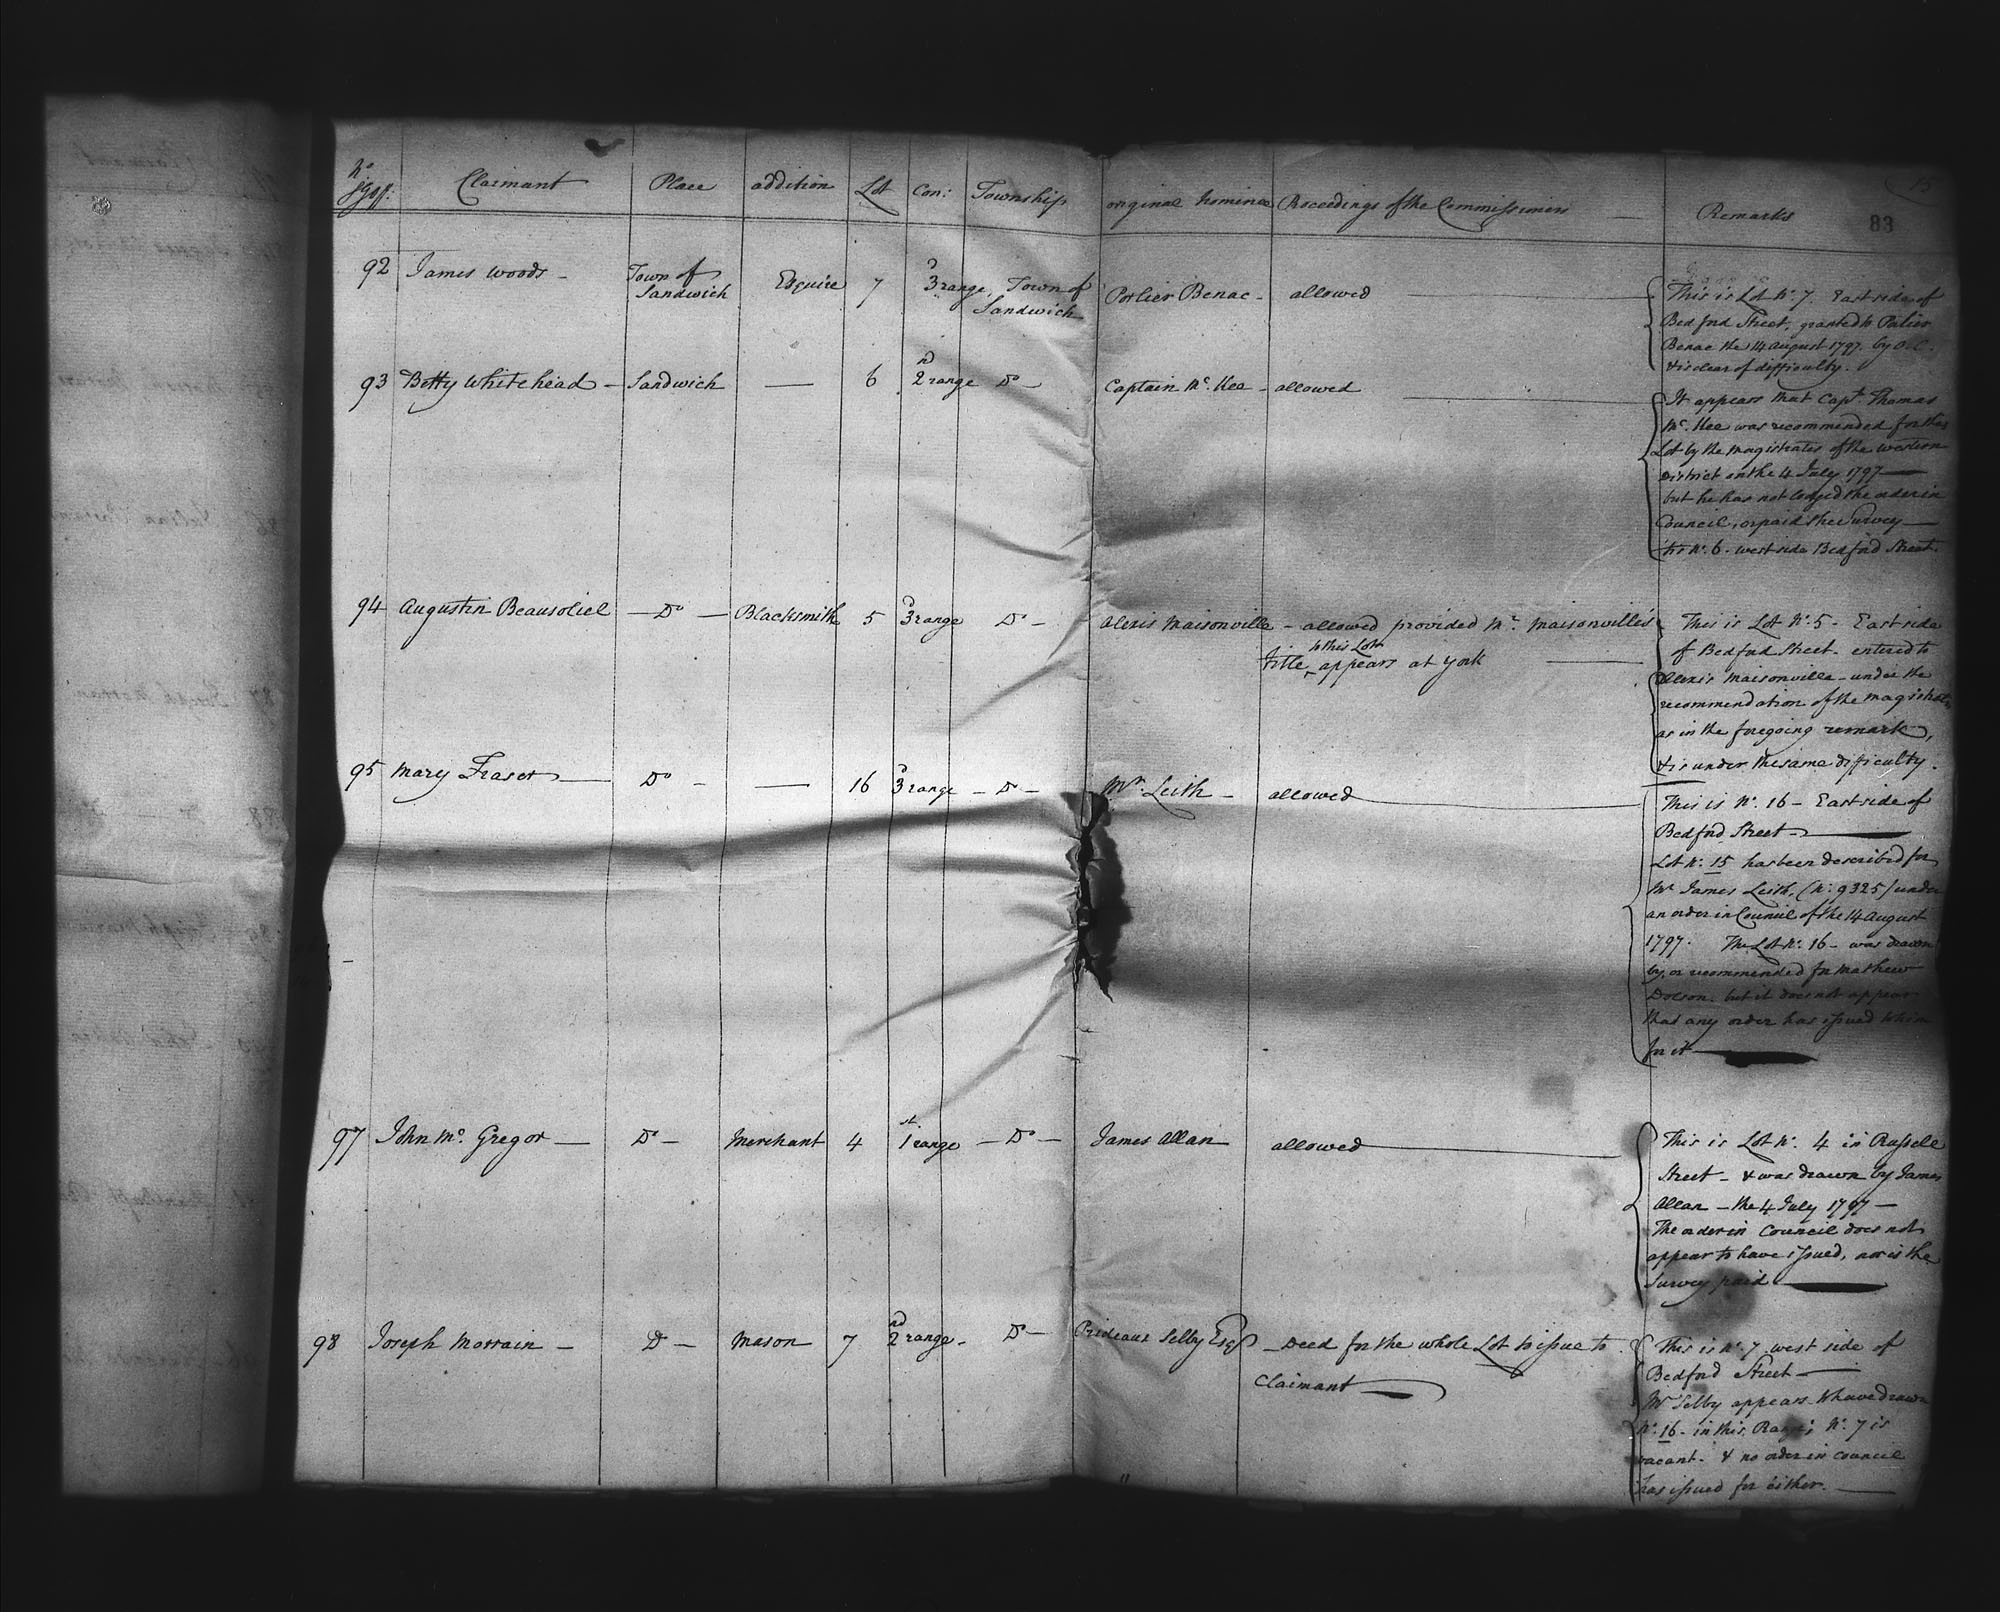 No Claimant Place addition Lot Con: Township original Nominee Proceedings of the Commissioners Remarks
15
83
92 James Woods - Town of Sandwich Esquire 7 3d range, Town of Sandwich Porlier Benac - allowed
This is Lot No. 7. East side of
Bedford Street, granted to Polier
Benac the 14 August 1797. by O.C.
& is clear of difficulty.
93 Betty Whitehead - Sandwich — 6 2nd range Do - Captain Mc. Kee - allowed
It appears that Capt. Thomas
Mc. Kee was recommended for this
Lot by the magistrates of the western
District on the 4 July 1797 —
but he has not lodged the order in
Council, or paid the Survey —
tis No. 6. west side Bedford Street.
94 Augustin Beausoliel — Do — Blacksmith 5 3d range Do - Alexis Maisonville - allowed provided Mr. Maisonville's
Title to this Lot appears at York
This is Lot No. 5 - East side
of Bedford Street. entered to
Alexis Maisonville - under the
recommendation of the magistrates
as in the foregoing remark,
& is under the same difficulty.
95 Mary Fraser — Do - — 16 3d range - Do - Mr. Leith - allowed
This is No. 16 - East side of
Bedford Street -
Lot No. 15 has been described for
Mr James Leith, (No. 9325) under
an order in Council of the 14 August
1797. The Lot No. 16 - was drawn
by, or recommended for Mathew
Dolson. but it does not appear
that any order has issued to him
for it
97 John Mc. Gregor — Do - Merchant 4 1st range - Do - James Allan allowed
This is Lot No. 4 in Russell
Street - & was drawn by James
Allan - the 4 July 1797 -
The order in Council does not
appear to have issued, nor is the
Survey paid
98 Joseph Morrain - Do - Mason 7 2nd range - Do - Prideaux Selby Esqr - Deed for the whole Lot to issue to
Claimant
This is No. 7 west side of
Bedford Street -
Mr Selby appears to have drawn
No. 16 - in this Range; No. 7 is
vacant. & no order in Council
has issued for either.